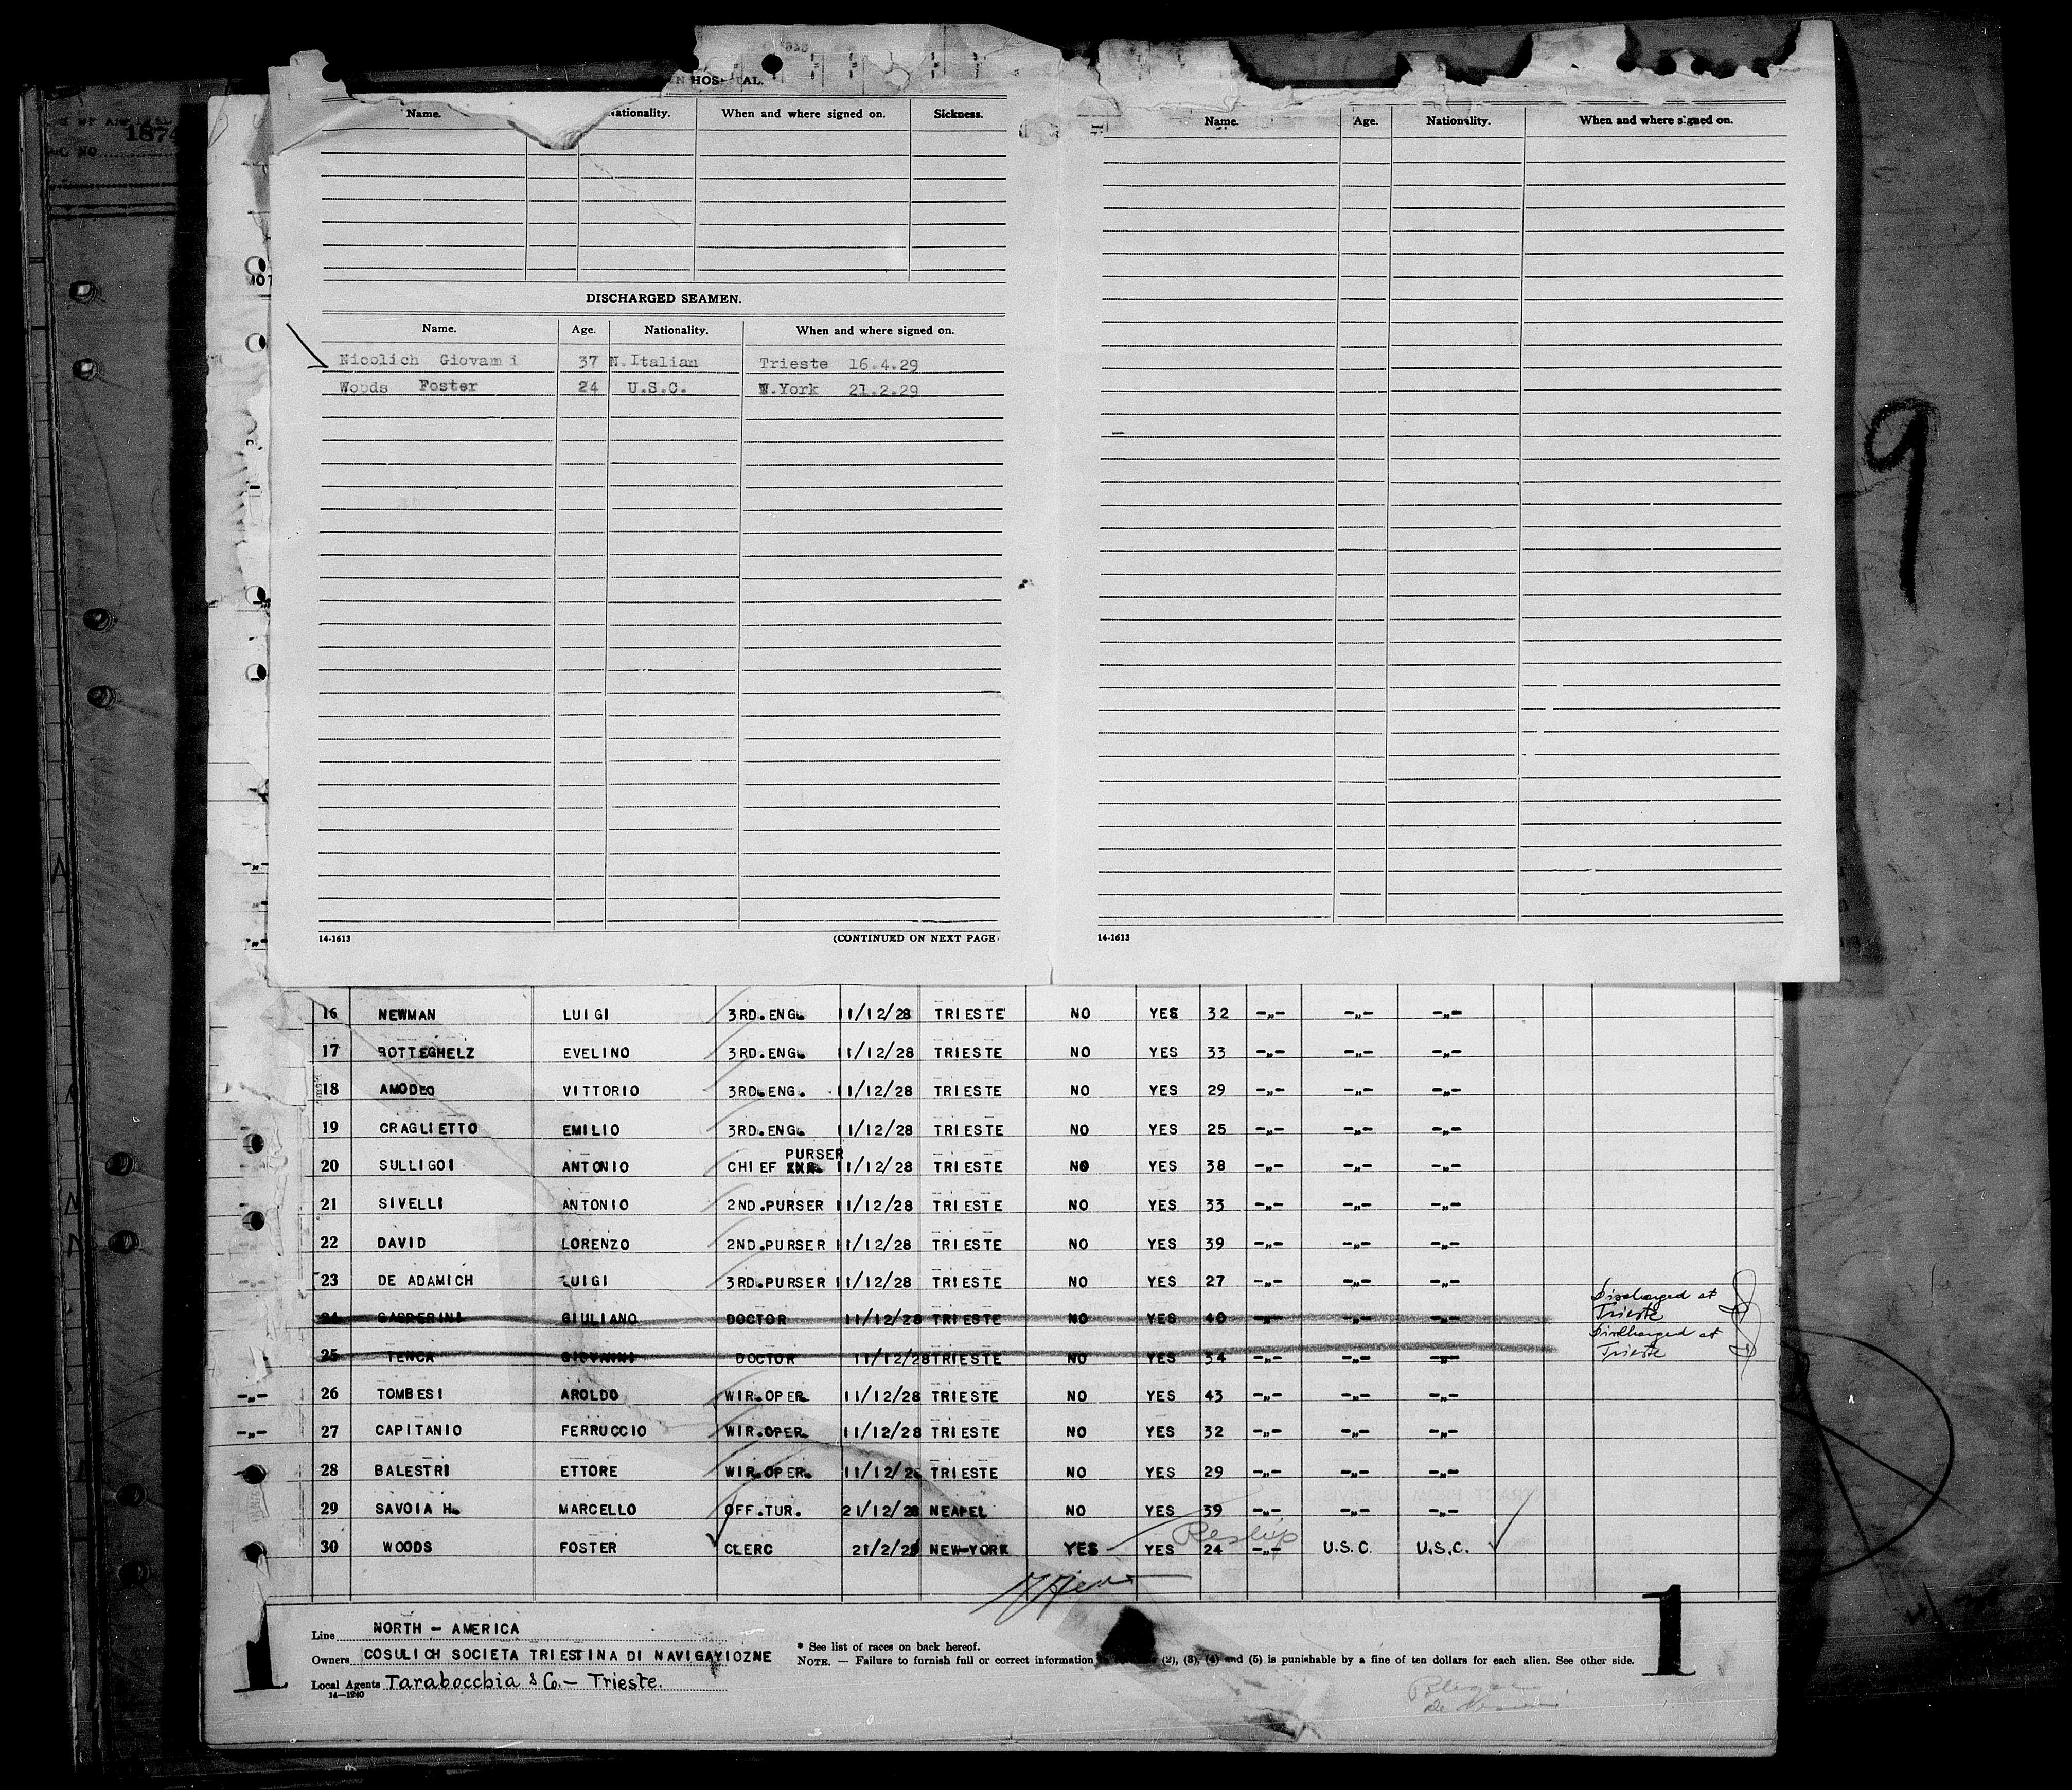 1874
HOS AL.
Name. Nationality. When and where signed on. Sickness.
DISCHARGED SEAMEN.
Name. Age. Nationality. When and where signed on.
Nicolich Giovanni 37 N.Italian Trieste 16.4.29
Woods Foster 24 U.S.C. N.York 21.2.29
14-1613 (CONTINUED ON NEXT PAGE)
Name. Age. Nationality. When and where signed on.
14-1613
9
16 NEWMAN LUIGI 3RD.ENG. 11/12/28 TRIESTE NO YES 32 -„- -„- -„-
17 BOTTEGHELZ EVELINO 3RD.ENG. 11/12/28 TRIESTE NO YES 33 -„- -„- -„-
18 AMODEO VITTORIO 3RD.ENG. 11/12/28 TRIESTE NO YES 29 -„- -„- -„-
19 CRAGLIETTO EMILIO 3RD.ENG. 11/12/28 TRIESTE NO YES 25 -„- -„- -„-
PURSER
20 SULLIGOI ANTONIO CHIEF 11/12/28 TRIESTE NO YES 38 -„- -„- -„-
21 SIVELLI ANTONIO 2ND.PURSER 11/12/28 TRIESTE NO YES 33 -„- -„- -„-
22 DAVID LORENZO 2ND.PURSER 11/12/28 TRIESTE NO YES 39 -„- -„- -„-
23 DE ADAMICH LUIGI 3RD.PURSER 11/12/28 TRIESTE NO YES 27 -„- -„- -„-
24 GASPERINI GIULIANO DOCTOR 11/12/28 TRIESTE NO YES 40 -„- -„- -„- Discharged at Trieste
25 TENCA GIOVANNI DOCTOR 11/12/28 TRIESTE NO YES 34 -„- -„- -„- Discharged at Trieste
-„- 26 TOMBESI AROLDO WIR.OPER. 11/12/28 TRIESTE NO YES 43 -„- -„- -„-
-„- 27 CAPITANIO FERRUCCIO WIR.OPER. 11/12/28 TRIESTE NO YES 32 -„- -„- -„-
28 BALESTRI ETTORE WIR.OPER. 11/12/28 TRIESTE NO YES 29 -„- -„- -„-
29 SAVOIA H. MARCELLO OFF.TUR. 21/12/28 NEAPEL NO YES 39 -„- -„- -„-
30 WOODS FOSTER CLERC 21/2/29 NEW-YORK YES YES 24 -„- U.S.C. U.S.C.
1 1
Line NORTH - AMERICA
Owners COSULICH SOCIETA TRIESTINA DI NAVIGAYIOZNE
Local Agents Tarabocchia & Co. - Trieste.
14-1240
* See list of races on back hereof.
NOTE. — Failure to furnish full or correct information (2), (3), (4) and (5) is punishable by a fine of ten dollars for each alien. See other side.